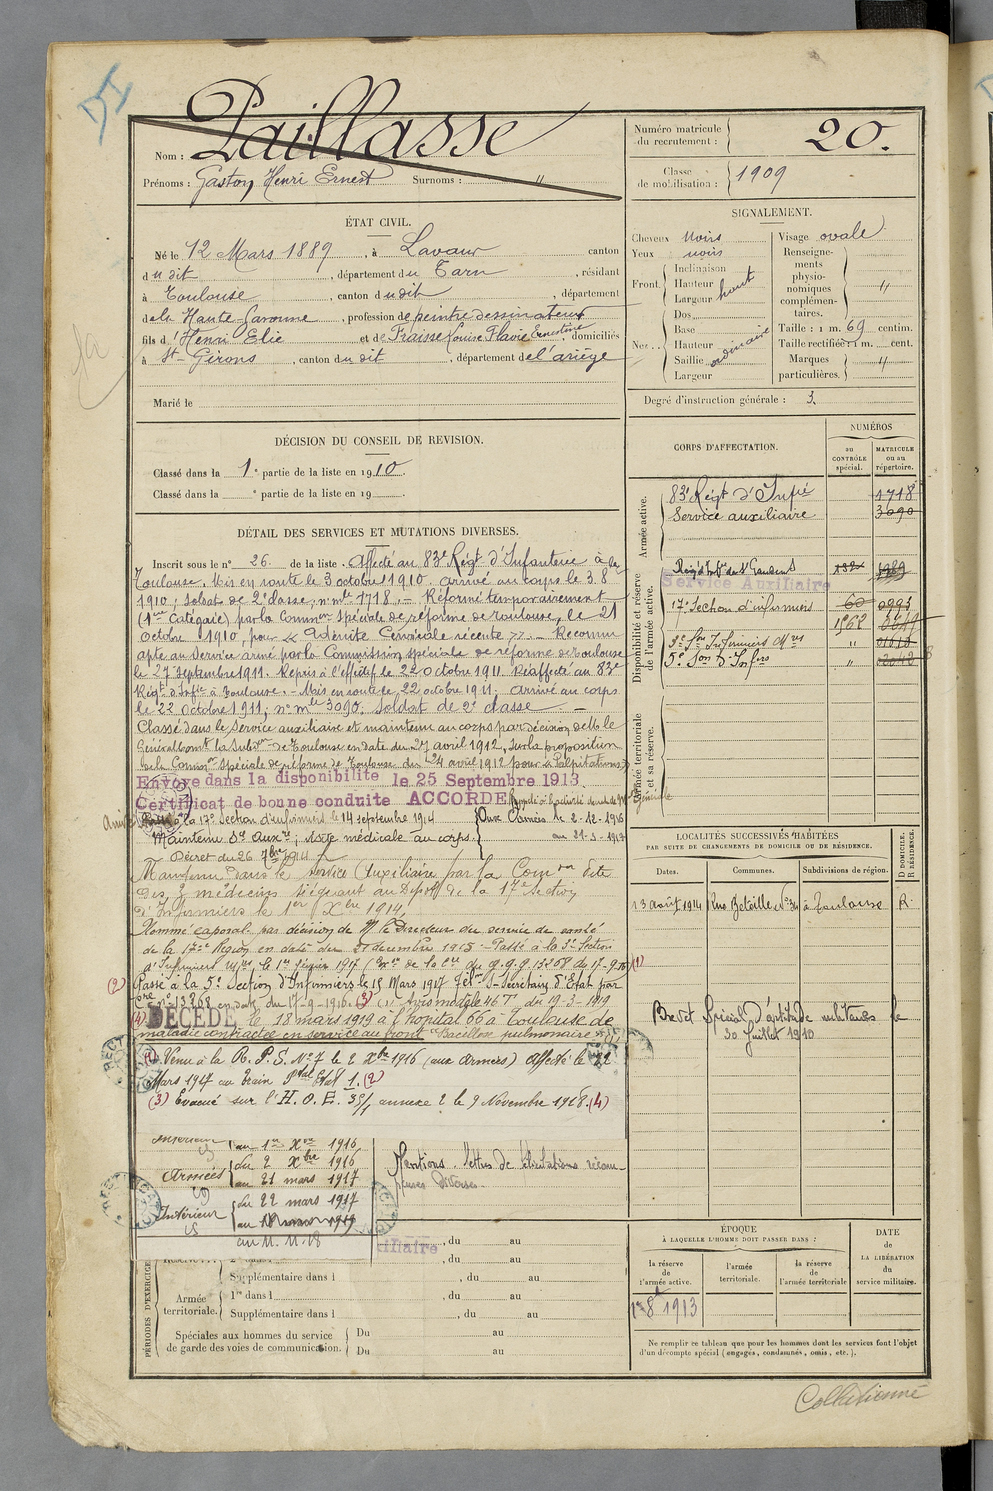 Paillasse
Nom :
Prénoms : Gaston Henri Ernest Surnoms : "
Numéro matricule du recrutement : 20.
Classe de mobilisation : 1909
ÉTAT CIVIL.
Né le 12 Mars 1889, à Lavaur canton
du dit, département du Tarn, résidant
à Toulouse, canton du dit, département
de la Haute-Garonne, profession de peintre dessinateur
fils d'Henri Elie et de Fraisse Louise Flavie Ernestine, domiciliés
à St-Girons, canton du dit, département de l'ariège
Marié le
SIGNALEMENT.
Cheveux noirs
Yeux noirs
Front. Inclinaison
Hauteur
Largeur haut
Nez Dos
Base
Hauteur
Saillie ordinaire
Largeur
Visage ovale
Renseignements physionomiques complémentaires. "
Taille : 1 m. 69 centim.
Taille rectifiée : 1 m. cent.
Marques particulières. "
Degré d'instruction générale : 3.
DÉCISION DU CONSEIL DE REVISION.
Classé dans la 1e partie de la liste en 1910.
Classé dans la e partie de la liste en 19
CORPS D'AFFECTATION.
NUMÉROS
au CONTRÔLE spécial.
MATRICULE ou au répertoire.
Armée active.
83e Régt d'Infie 1718
Service auxiliaire 3090
Disponibilité et réserve de l'armée active.
Régt Infie de St Gaudens
Service Auxiliaire
17e Section d'infirmiers 60 0993
1562
5e Son d'Infirs "
Armée territoriale et sa réserve.
DÉTAIL DES SERVICES ET MUTATIONS DIVERSES.
Inscrit sous le n° 26. de la liste. Affecté au 83e Régt d'Infanterie à
Toulouse. Mis en route le 3 octobre 1910. arrivé au corps le 3. 8
1910; Soldat de 2e classe, n° mle 1718. — Réformé temporairement
(1ère Catégorie) par la Common Spéciale de réforme de Toulouse, le 21
Octobre 1910, pour
Reconnu
apte au service armé par la Commission spéciale de réforme de Toulouse
le 27 septembre 1911. Repris à l'effectif le 22 octobre 1911. Réaffecté au 83e
Régt d'Infie à Toulouse. — Mis en route le 22 octobre 1911, arrivé au corps
le 22 Octobre 1911; n° mle 3090. Soldat de 2e classe —
Classé dans le Service auxiliaire et maintenu au corps par décision de M le
Général Comt la Subdon de Toulouse en date du 27 avril 1912, sur la proposition
de la Comon spéciale de réforme de Toulouse du 24 avril 1912 pour « Palpitations »
Envoyé dans la disponibilité le 25 Septembre 1913.
Certificat de bonne conduite ACCORDÉ
à la 17e Section d'infirmiers le 14 septembre 1914
Aux Armées le 2-12-1916
au 21-3-1917
Maintenu Sce Auxre; visite médicale au corps.
Décret du 26 7bre 1914
Maintenu dans le service Auxiliaire par la Comon dite
des 3 médecins siégeant au Dépôt de la 17e Section
d'Infirmiers le 1er Xbre 1914.
Nommé caporal par décision de M le Directeur du service de santé
de la 17e Région en date du 21 decembre 1915 - Passé à la 3e Section
d'Infirmiers le 1er février 1917
(1)
(2) Passé à la 5e Section d'Infirmiers le 15 Mars 1917
n° 13268 en date du 17-9-1916. (3) Avis modèle 46 T du 19-3-1919
(4) DÉCÉDÉ le 18 mars 1919 à l'hôpital 66 à Toulouse de
maladie contractée en service au front
(1) Venu à la R. P. S. N° 7 le 2 Xbre 1916 (aux armées) Affecté le 22
Mars 1917 au train 1. (2)
(3) Evacué sur l'H. O. E. annexe 2 le 9 Novembre 1918. (4)
Intérieur au 1er Xbre 1916
Armées du 2 Xbre 1916
au 21 mars 1917
Intérieur du 22 mars 1917
au 11.11.18
Mentions. lettres de félicitations récompenses diverses.
LOCALITÉS SUCCESSIVES HABITÉES
PAR SUITE DE CHANGEMENTS DE DOMICILE OU DE RÉSIDENCE.
Dates. Communes. Subdivisions de région. D DOMICILE. R RÉSIDENCE.
13 août 1914 Rue Béteille N° 34 à Toulouse R.
Brevet Spécial d'aptitude militaire le
30 Juillet 1910
ÉPOQUE
À LAQUELLE L'HOMME DOIT PASSER DANS :
la réserve de l'armée active.
l'armée territoriale.
la réserve de l'armée territoriale
DATE de LA LIBÉRATION du service militaire.
1er 8bre 1913
PÉRIODES D'EXERCICES
, du au
, du au
Supplémentaire dans l , du au
Armée territoriale. 1re dans l , du au
Supplémentaire dans l , du au
Spéciales aux hommes du service de garde des voies de communication. Du au
Du au
Ne remplir ce tableau que pour les hommes dont les services font l'objet
d'un décompte spécial (engagés, condamnés, omis, etc.).
Collationné